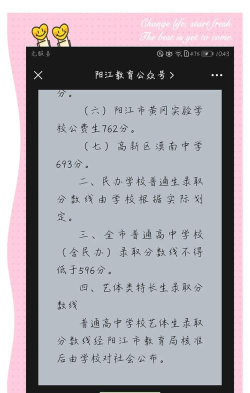 Change life, start fresh
The best is yet to come
无服务
10:43
阳江教育公众号 >
分。
（六）阳江市黄冈实验学
校公费生762分。
（七）高新区漠南中学
693分。
二、民办学校普通生录取
分数线由学校根据实际划
定。
三、全市普通高中学校
（含民办）录取分数线不得
低于596分。
四、艺体类特长生录取分
数线
普通高中学校艺体生录取
分数线经阳江市教育局核准
后由学校对社会公布。